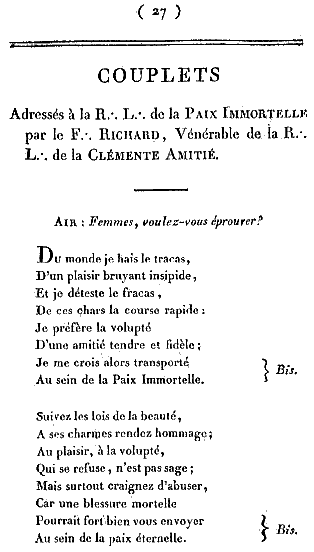 ( 27 )
COUPLETS
Adressés à la R.·. L.·. de la PAIX IMMORTELLE
par le F.·. RICHARD, Vénérable de la R.·.
L.·. de la CLÉMENTE AMITIÉ.
AIR : Femmes, voulez-vous éprouver ?
Du monde je hais le tracas,
D'un plaisir bruyant insipide,
Et je déteste le fracas,
De ces chars la course rapide :
Je préfère la volupté
D'une amitié tendre et fidèle ;
Je me crois alors transporté } Bis.
Au sein de la Paix Immortelle.
Suivez les lois de la beauté,
A ses charmes rendez hommage ;
Au plaisir, à la volupté,
Qui se refuse, n'est pas sage ;
Mais surtout craignez d'abuser,
Car une blessure mortelle
Pourrait fort bien vous envoyer } Bis.
Au sein de la paix éternelle.